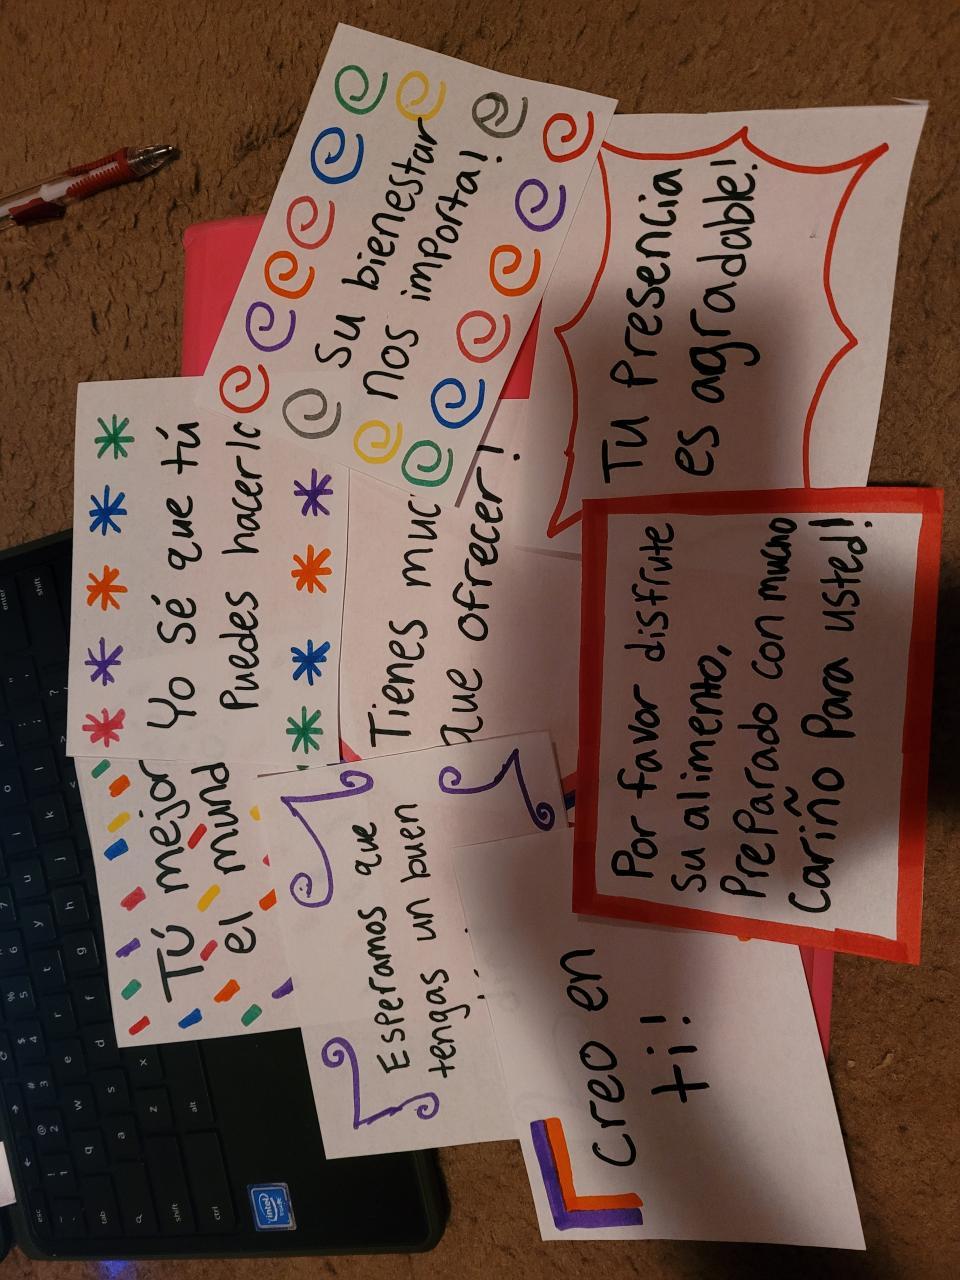 Su bienestar
nos importa!
Tu Presencia
es agradable!
Yo Sé que tú
Puedes
Tienes
que ofrecer!
Por favor disfrute
su alimento,
Preparado con mucho
Cariño Para usted!
Tú mejor
el
Esperamos que
tengas un buen
Creo en
ti!
intel
enter
shift
esc
tab
shift
ctrl
alt